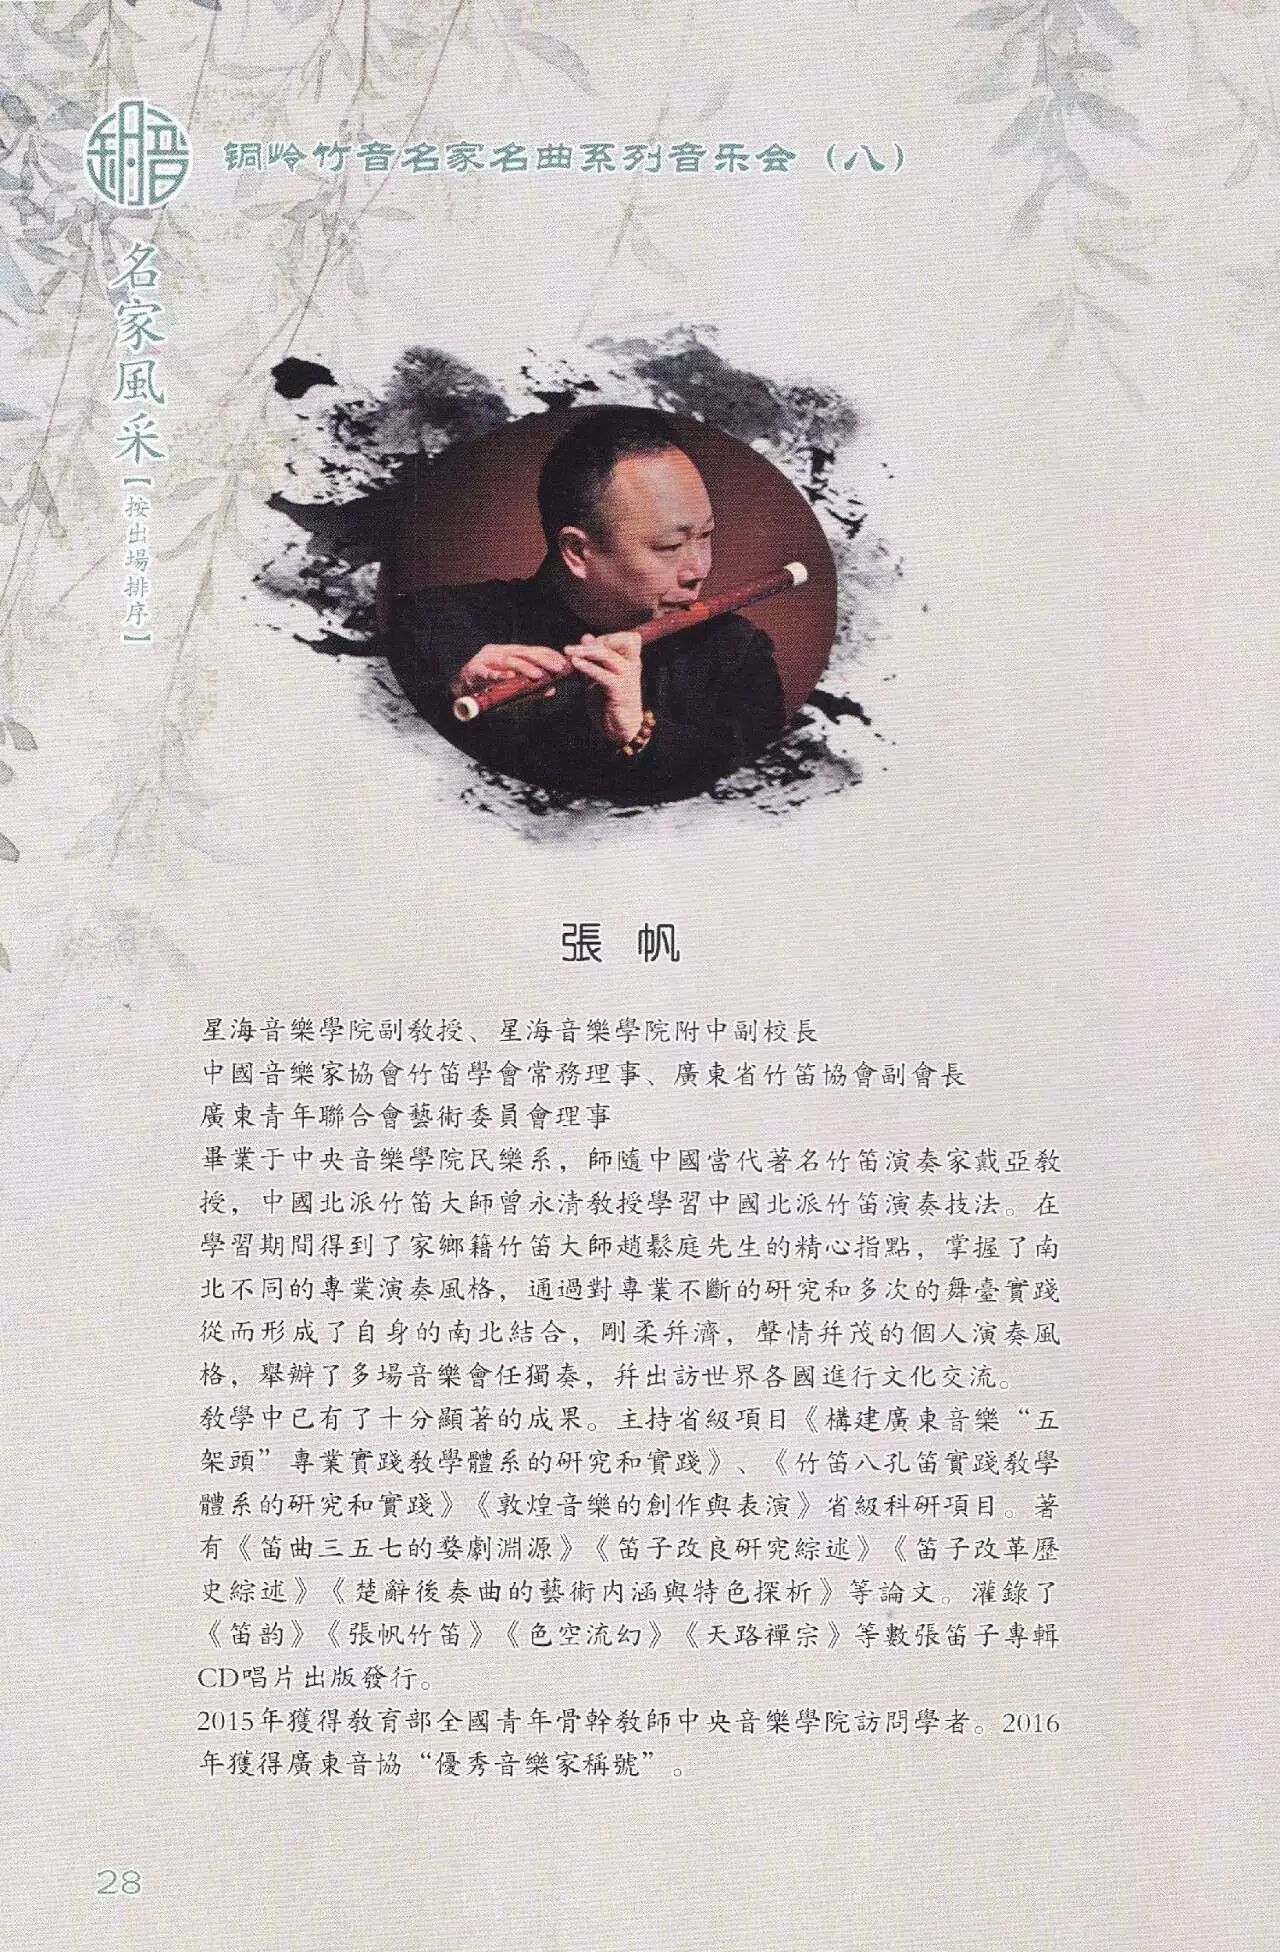 铜岭竹音名家名曲系列音乐会（八）
名家風采
【按出場排序】
張 帆
星海音樂學院副教授、星海音樂學院附中副校長
中國音樂家協會竹笛學會常務理事、廣東省竹笛協會副會長
廣東青年聯合會藝術委員會理事
畢業于中央音樂學院民樂系，師隨中國當代著名竹笛演奏家戴亞教
授，中國北派竹笛大師曾永清教授學習中國北派竹笛演奏技法。在
學習期間得到了家鄉籍竹笛大師趙鬆庭先生的精心指點，掌握了南
北不同的專業演奏風格，通過對專業不斷的研究和多次的舞臺實踐
從而形成了自身的南北結合，剛柔并濟，聲情并茂的個人演奏風
格，舉辦了多場音樂會任獨奏，并出訪世界各國進行文化交流。
教學中已有了十分顯著的成果。主持省級項目《構建廣東音樂“五
架頭”專業實踐教學體系的研究和實踐》、《竹笛八孔笛實踐教學
體系的研究和實踐》《敦煌音樂的創作與表演》省級科研項目。著
有《笛曲三五七的婺劇淵源》《笛子改良研究綜述》《笛子改革歷
史綜述》《楚辭後奏曲的藝術内涵與特色探析》等論文。灌錄了
《笛韵》《張帆竹笛》《色空流幻》《天路禪宗》等數張笛子專輯
CD唱片出版發行。
2015年獲得教育部全國青年骨幹教師中央音樂學院訪問學者。2016
年獲得廣東音協“優秀音樂家稱號”。
28